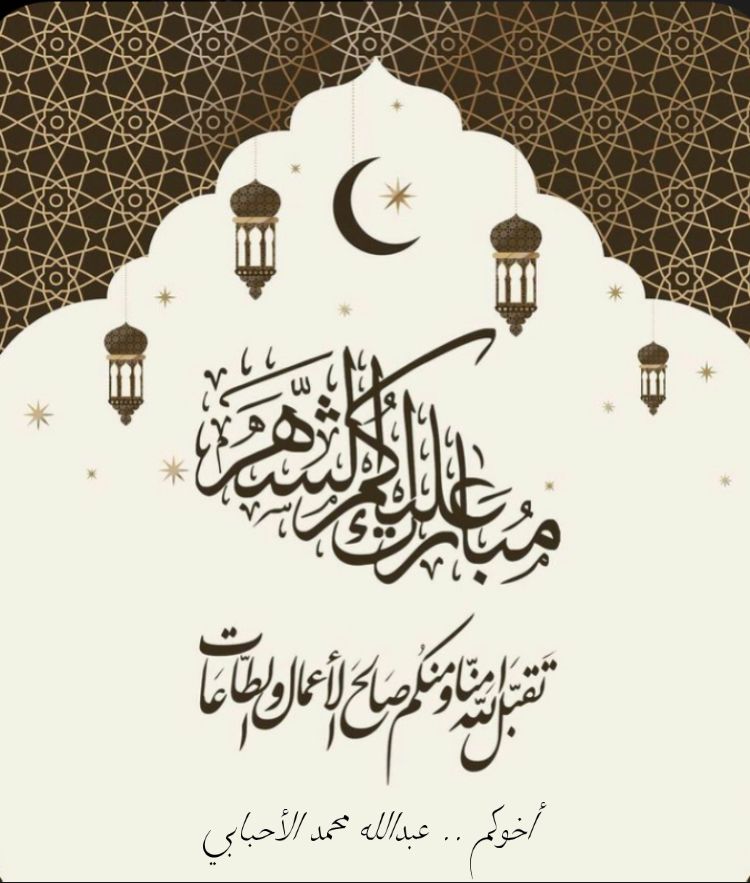 مُبَارَك عليكُم الشَّهر
تَقبَّل الله مِنّا ومنكُم صَالحَ الأعمال والطّاعَات
أخوكم .. عبدالله محمد الأحبابي